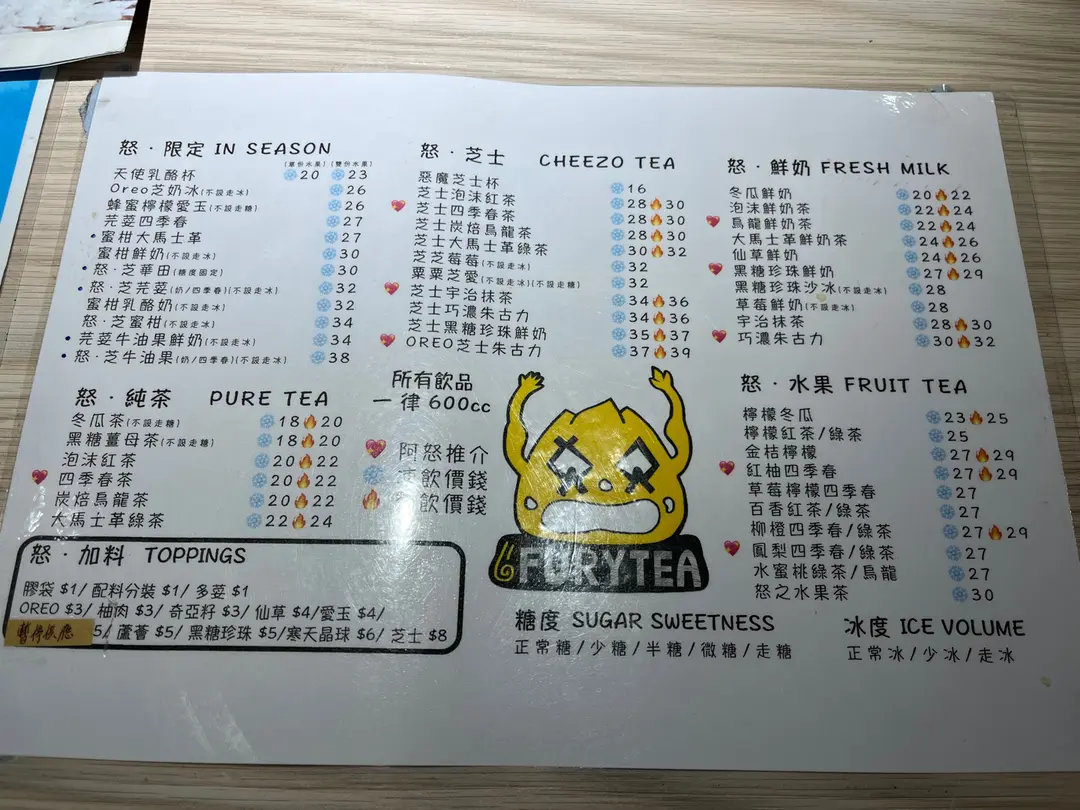 怒·限定 IN SEASON
(單份水果) (雙份水果)
天使乳酪杯 20 23
Oreo芝奶冰(不設走冰) 26
蜂蜜檸檬愛玉(不設走糖) 26
芫荽四季春 27
蜜柑大馬士革 27
蜜柑鮮奶(不設走冰) 30
怒·芝華田(糖度固定) 30
怒·芝芫荽(奶/四季春)(不設走冰) 32
蜜柑乳酪奶(不設走冰) 32
怒·芝蜜柑(不設走冰) 34
芫荽牛油果鮮奶(不設走冰) 34
怒·芝牛油果(奶/四季春)(不設走冰) 38
怒·芝士 CHEEZO TEA
惡魔芝士杯 16
芝士泡沫紅茶 28 30
芝士四季春茶 28 30
芝士炭焙烏龍茶 28 30
芝士大馬士革綠茶 30 32
芝芝莓莓(不設走冰) 32
粟粟芝愛(不設走冰)(不設走糖) 32
芝士宇治抹茶 34 36
芝士巧濃朱古力 34 36
芝士黑糖珍珠鮮奶 35 37
OREO芝士朱古力 37 39
怒·鮮奶 FRESH MILK
冬瓜鮮奶 20 22
泡沫鮮奶茶 22 24
烏龍鮮奶茶 22 24
大馬士革鮮奶茶 24 26
仙草鮮奶 24 26
黑糖珍珠鮮奶 27 29
黑糖珍珠沙冰(不設走冰) 28
草莓鮮奶(不設走冰) 28
宇治抹茶 28 30
巧濃朱古力 30 32
怒·純茶 PURE TEA
冬瓜茶(不設走糖) 18 20
黑糖薑母茶(不設走糖) 18 20
泡沫紅茶 20 22
四季春茶 20 22
炭焙烏龍茶 20 22
大馬士革綠茶 22 24
所有飲品
一律 600cc
阿怒推介
飲價錢
飲價錢
FURYTEA
怒·水果 FRUIT TEA
檸檬冬瓜 23 25
檸檬紅茶/綠茶 25
金桔檸檬 27 29
紅柚四季春 27 29
草莓檸檬四季春 27
百香紅茶/綠茶 27
柳橙四季春/綠茶 27 29
鳳梨四季春/綠茶 27
水蜜桃綠茶/烏龍 27
怒之水果茶 30
怒·加料 TOPPINGS
膠袋 $1/ 配料分裝 $1/ 多荽 $1
OREO $3/ 柚肉 $3/ 奇亞籽 $3/ 仙草 $4/愛玉 $4/
暫停供應 5/ 蘆薈 $5/ 黑糖珍珠 $5/寒天晶球 $6/ 芝士 $8
糖度 SUGAR SWEETNESS
正常糖/少糖/半糖/微糖/走糖
冰度 ICE VOLUME
正常冰/少冰/走冰